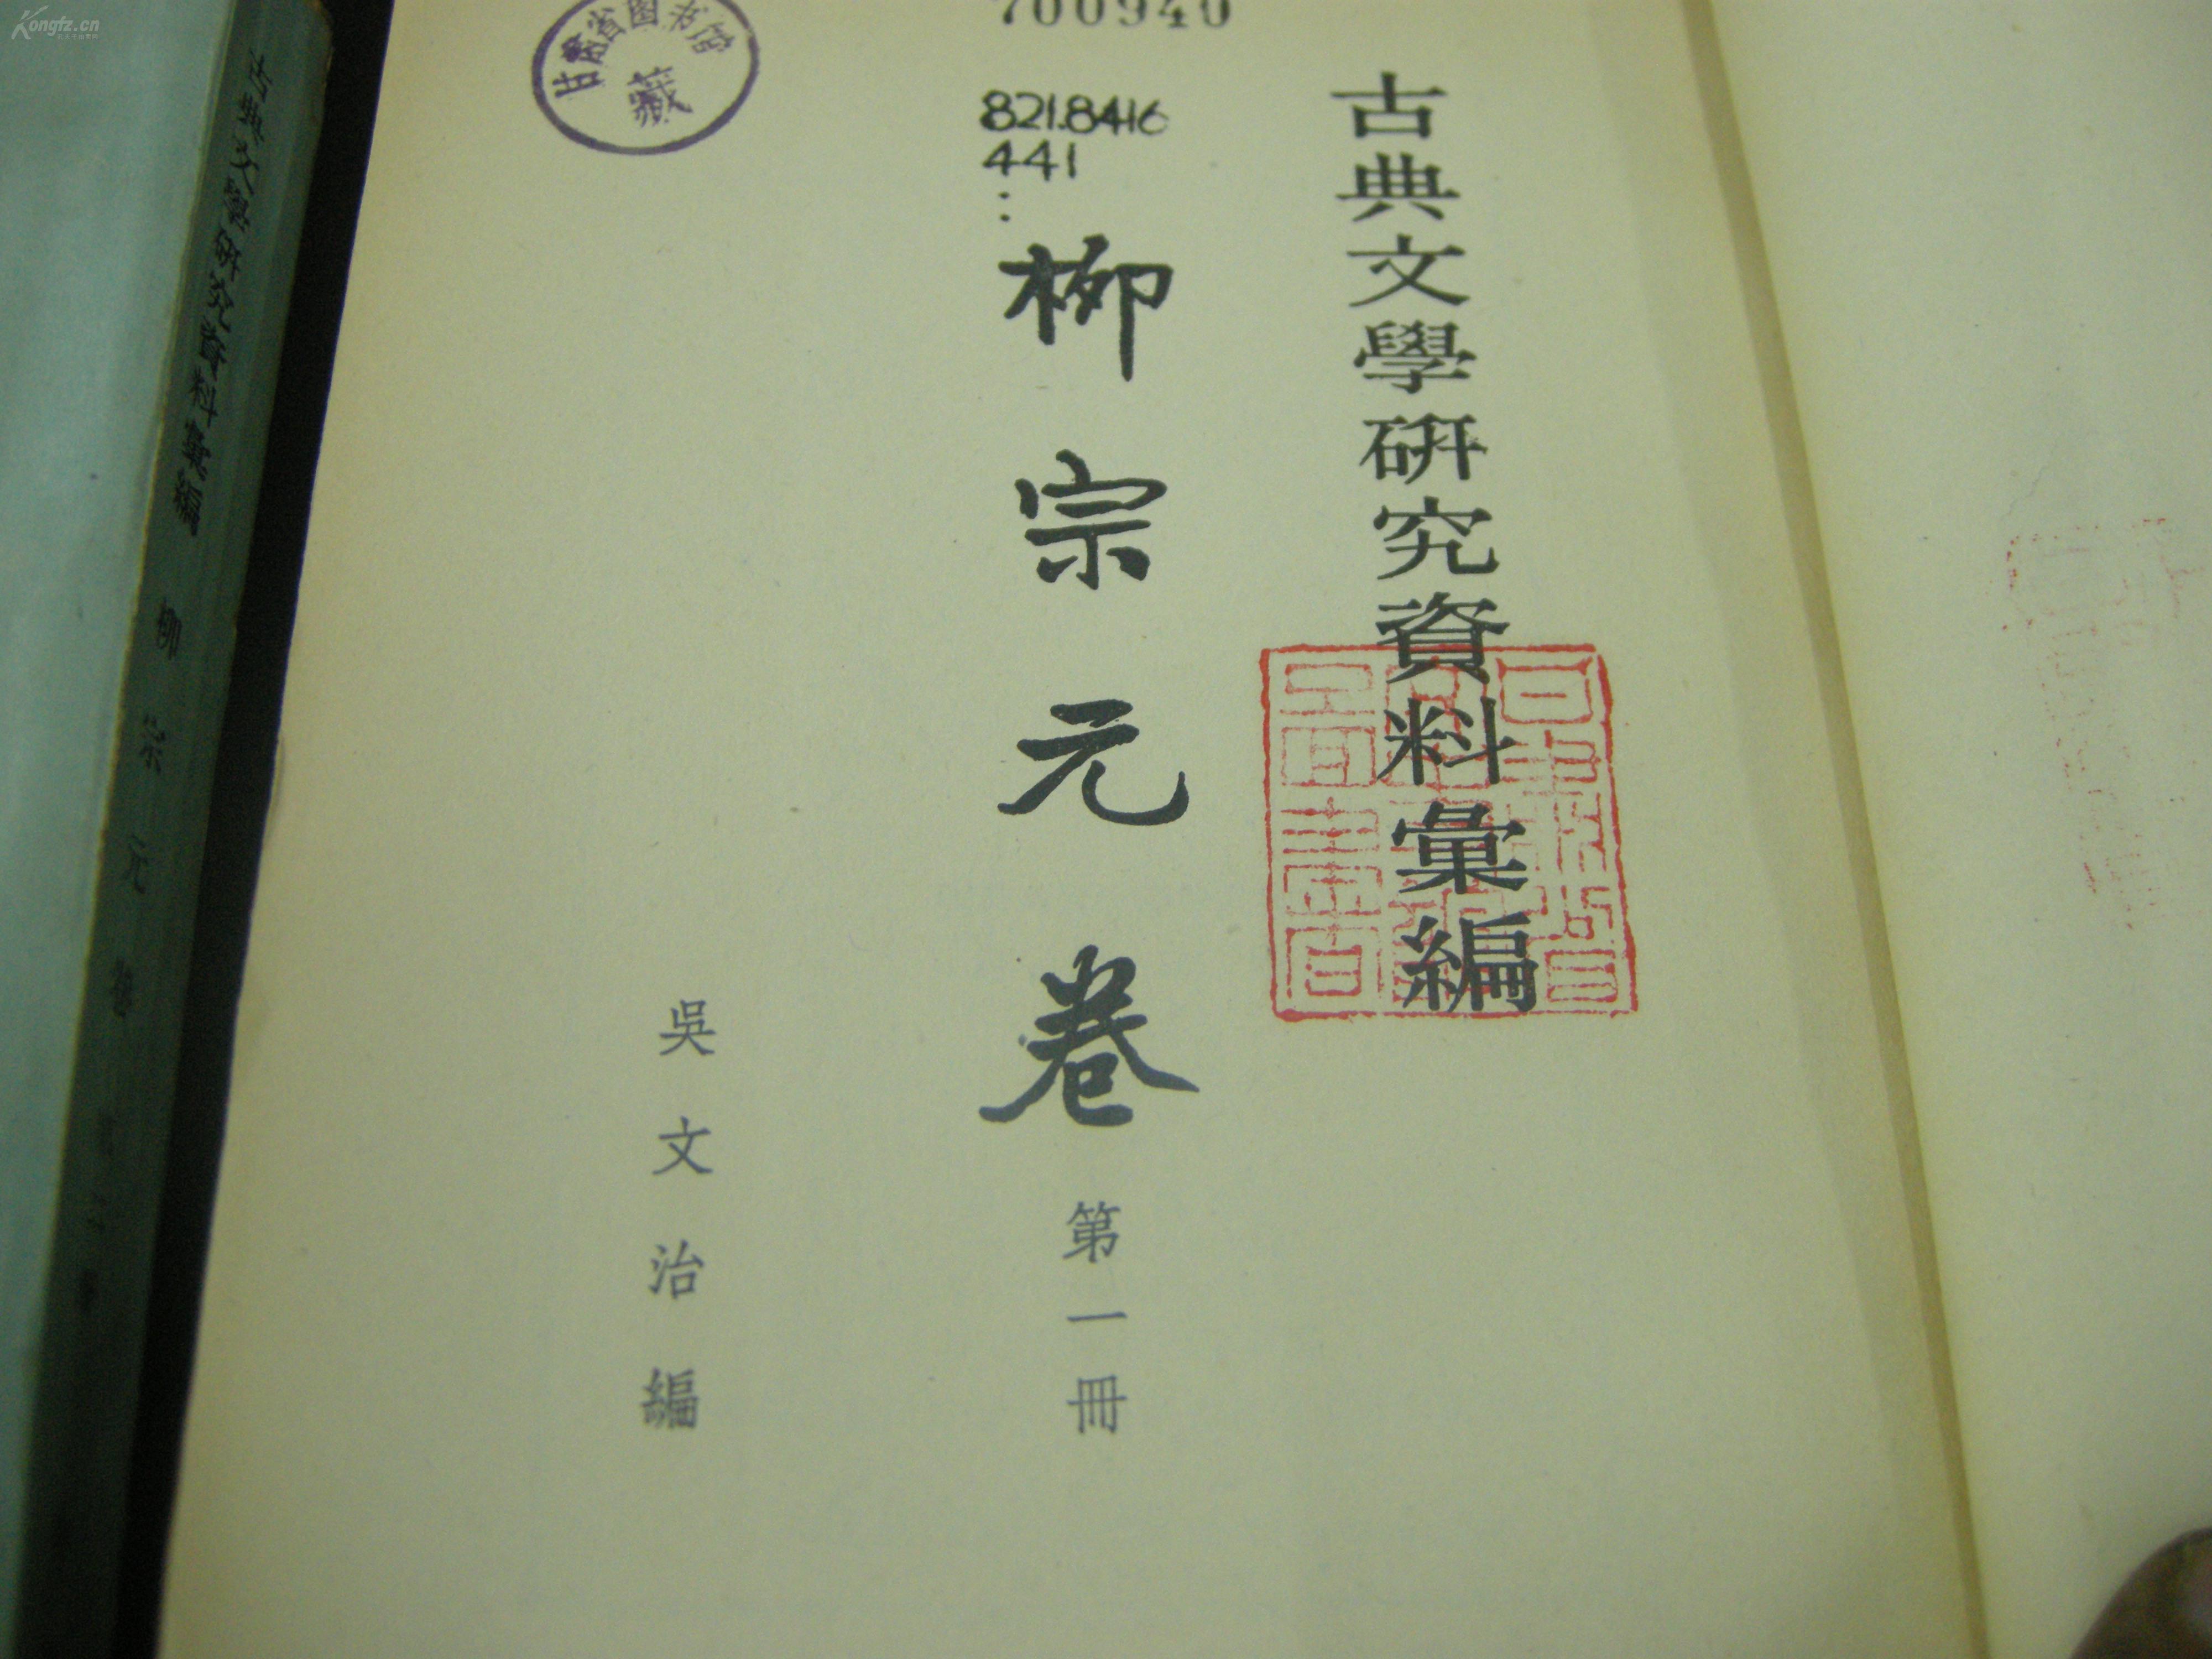 Kongfz.cn
古典文學研究資料彙編 柳宗元卷
甘肅省图书馆
藏
700940
821.8416
441
:
古典文學研究資料彙編
柳宗元卷 第一冊
吳文治編